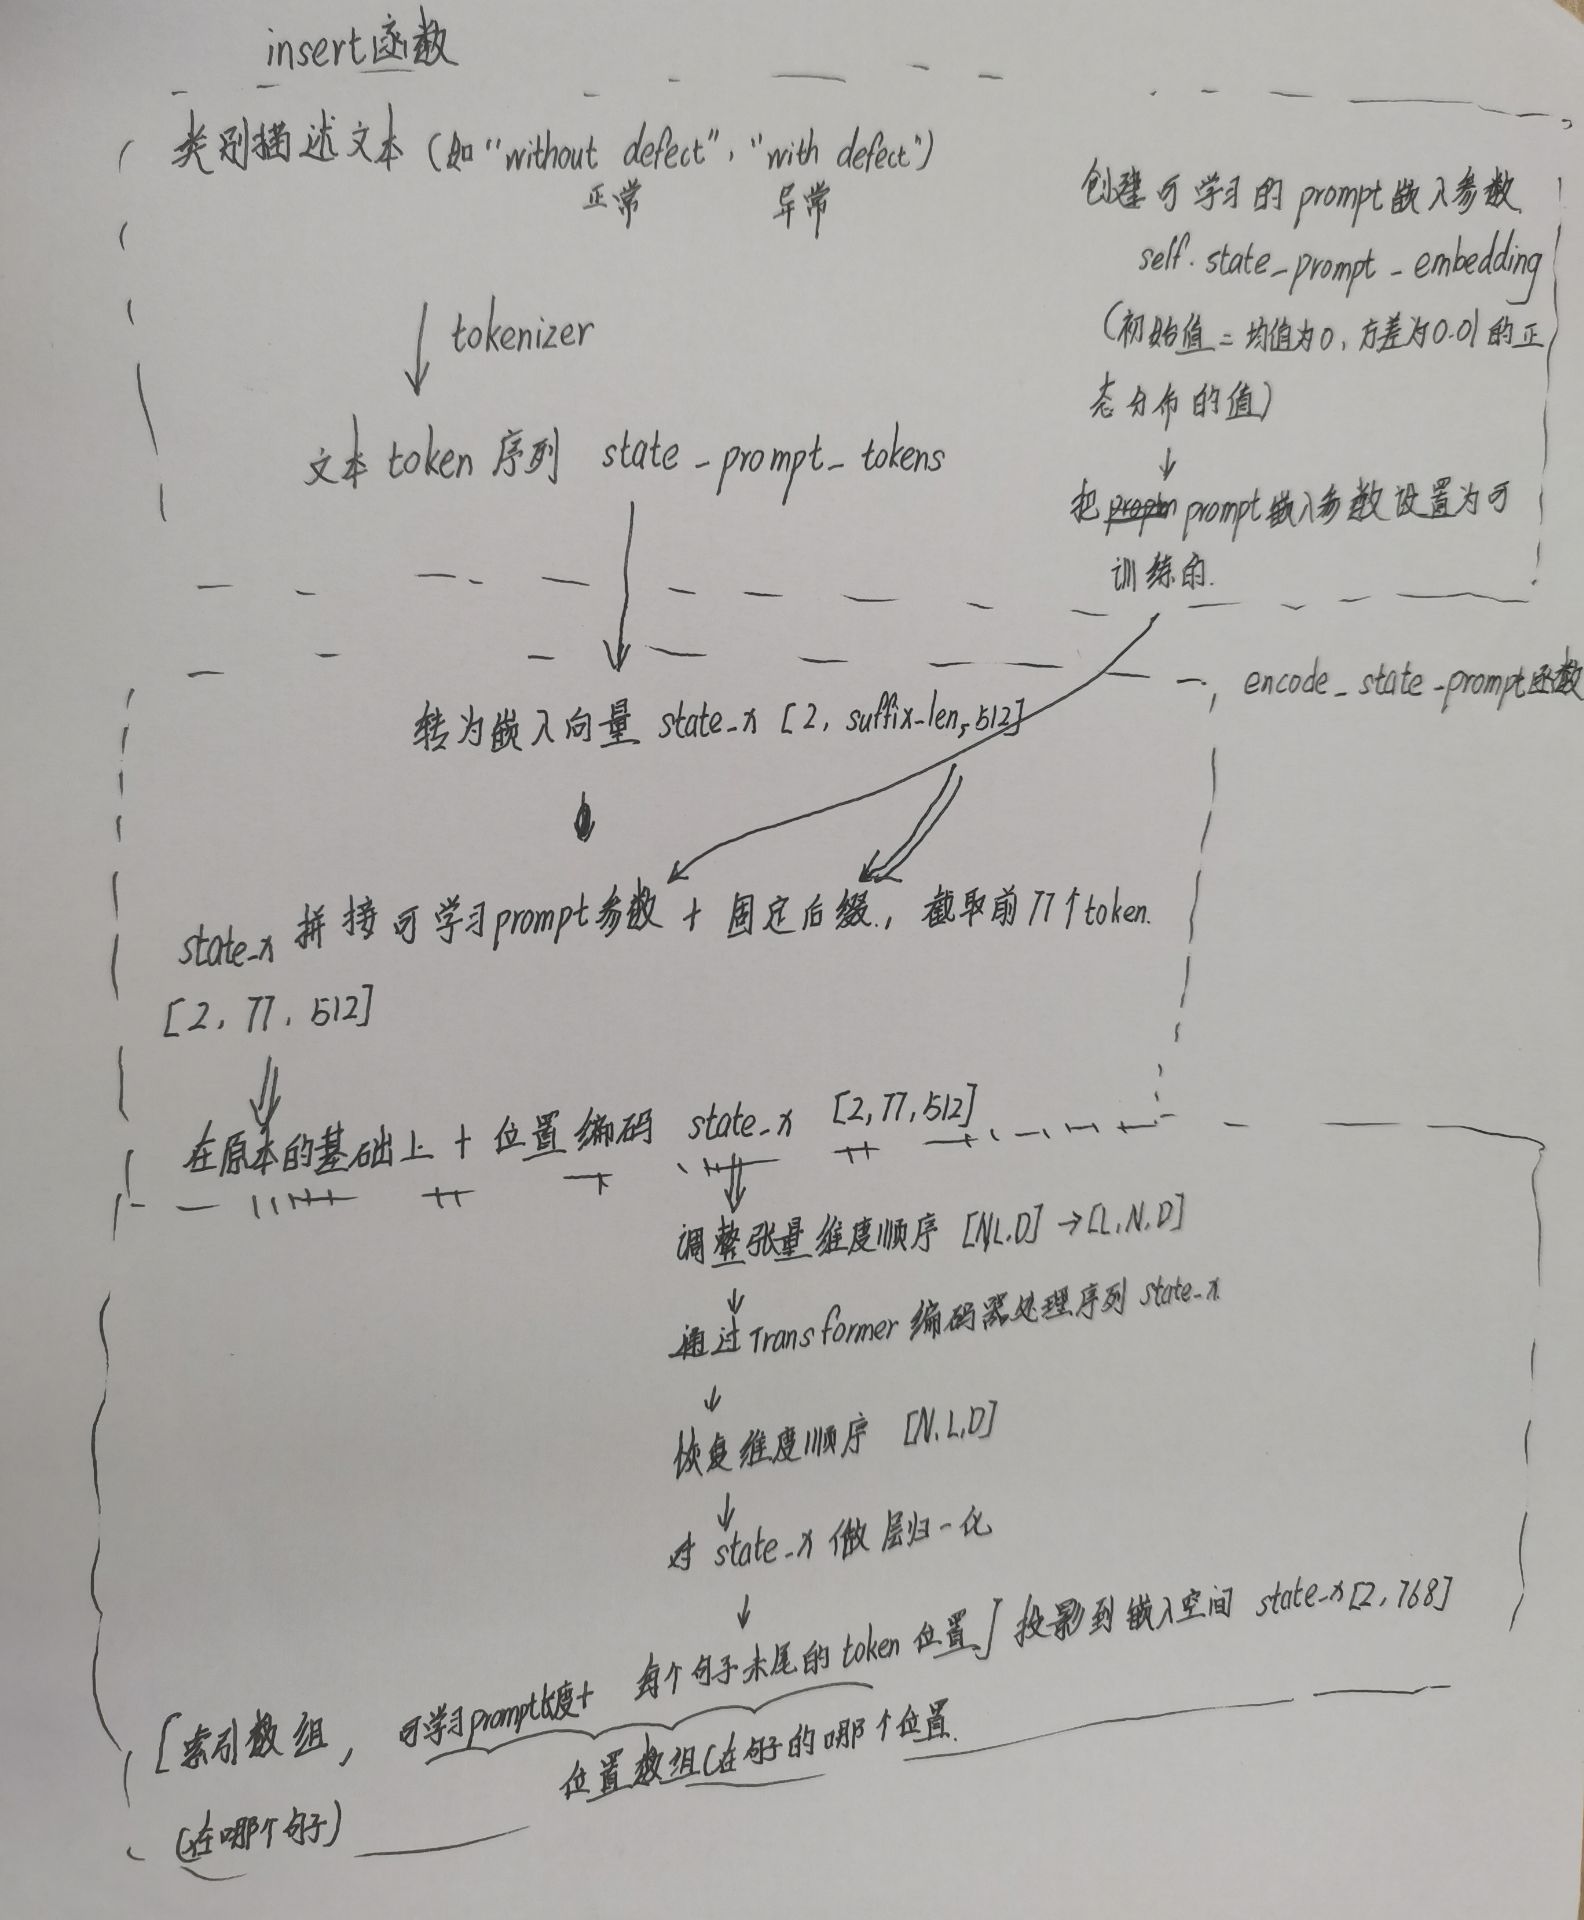 insert函数
类别描述文本 (如 "without defect", "with defect")
正常 异常
创建可学习的 prompt嵌入参数
self.state_prompt_embedding
(初始值=均值为0,方差为0.01的正
态分布的值)
↓
把 prompt嵌入参数设置为可
训练的.
tokenizer
文本 token 序列 state_prompt_tokens
encode_state_prompt函数
转为嵌入向量 state_x [2, suffix-len, 512]
state_x 拼接可学习prompt参数 + 固定后缀., 截取前77个token.
[2, 77, 512]
在原本的基础上 + 位置编码 state_x [2,77,512]
调整张量维度顺序 [N,L,D] → [L,N,D]
↓
通过Transformer编码器处理序列 state_x
↓
恢复维度顺序 [N,L,D]
↓
对 state_x 做层归一化
↓
[索引数组, 可学习prompt长度+ 每个句子末尾的token位置] 投影到嵌入空间 state_x[2,768]
位置数组(在句子的哪个位置.
(在哪个句子)